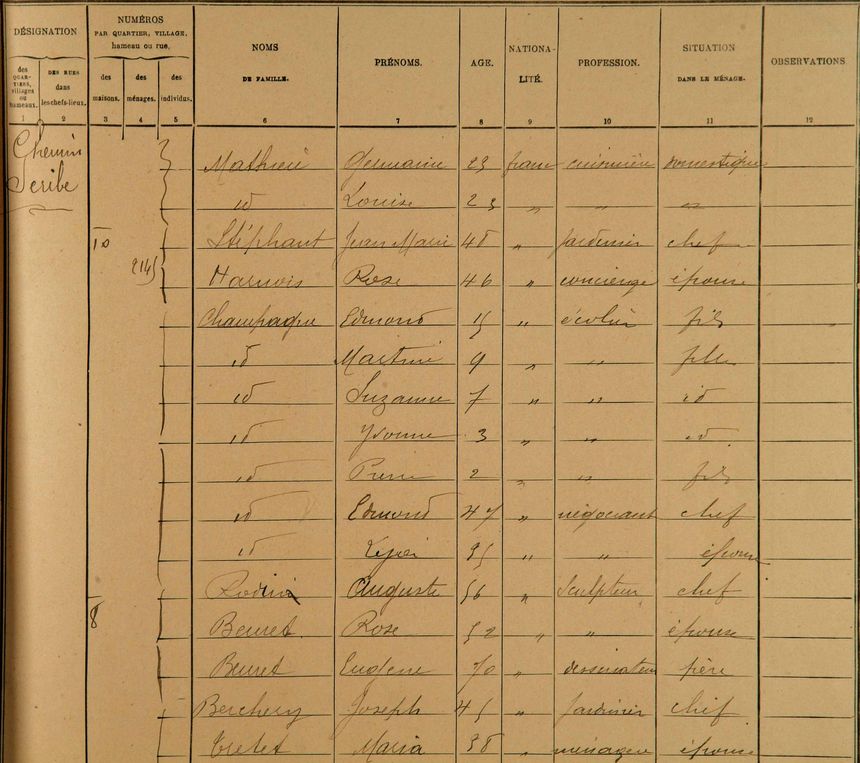 DÉSIGNATION
NUMÉROS
PAR QUARTIER, VILLAGE,
hameau ou rue.
NOMS
DE FAMILLE.
PRÉNOMS.
AGE.
NATIONA-
LITÉ.
PROFESSION.
SITUATION
DANS LE MÉNAGE.
OBSERVATIONS
des
QUAR-
TIERS,
villages
ou
hameaux.
DES RUES
dans
les chefs-lieux.
des
maisons.
des
ménages.
des
individus.
1 2 3 4 5 6 7 8 9 10 11 12
Chemin
Scribe
Mathieu Germaine 29 franç cuisinière domestique
id Louise 23 " " "
10 Stéphant Jean Marie 48 " jardinier chef
214 Harnois Rose 46 " concierge épouse
Champagne Edmond 15 " écolier fils
id Martine 9 " " fille
id Suzanne 7 " " id
id Yvonne 3 " " id
id Pierre 2 " " fils
id Edmond 47 " négociant chef
id 35 " " épouse
8 Rodin Auguste 56 " Sculpteur chef
Beuret Rose 52 " " épouse
Beuret Eugène 70 " dessinateur père
Berchery Joseph 45 " Jardinier chef
Tretet Maria 38 " ménagère épouse